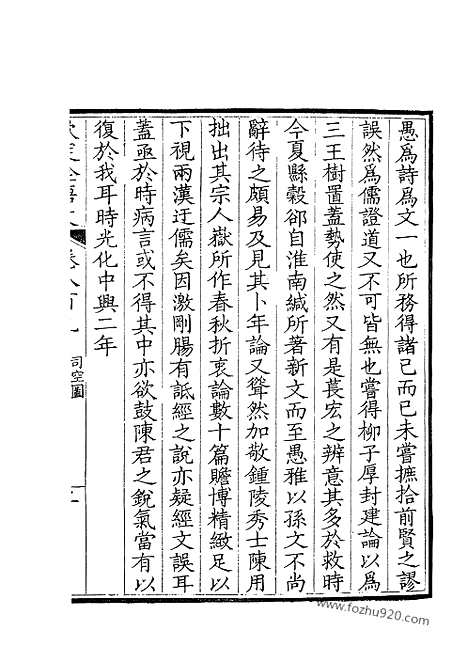 愚爲詩爲文一也所務得諸己而已未嘗摭拾前賢之謬
誤然爲儒證道又不可皆無也嘗得柳子厚封建論以爲
三王樹置蓋勢使之然又有是萇宏之辨意其多於救時
今夏縣穀郤自淮南緘所著新文而至愚雅以孫文不尚
辭待之頗易及見其卜年論又聳然加敬鍾陵秀士陳用
拙出其宗人嶽所作春秋折衷論數十篇贍博精緻足以
下視兩漢迂儒矣因激剛腸有詆經之說亦疑經文誤耳
蓋亟於時病言或不得其中亦欲鼓陳君之銳氣當有以
復於我耳時光化中興二年
欽定全唐文
卷八百九
司空圖
www.fozhu920.com